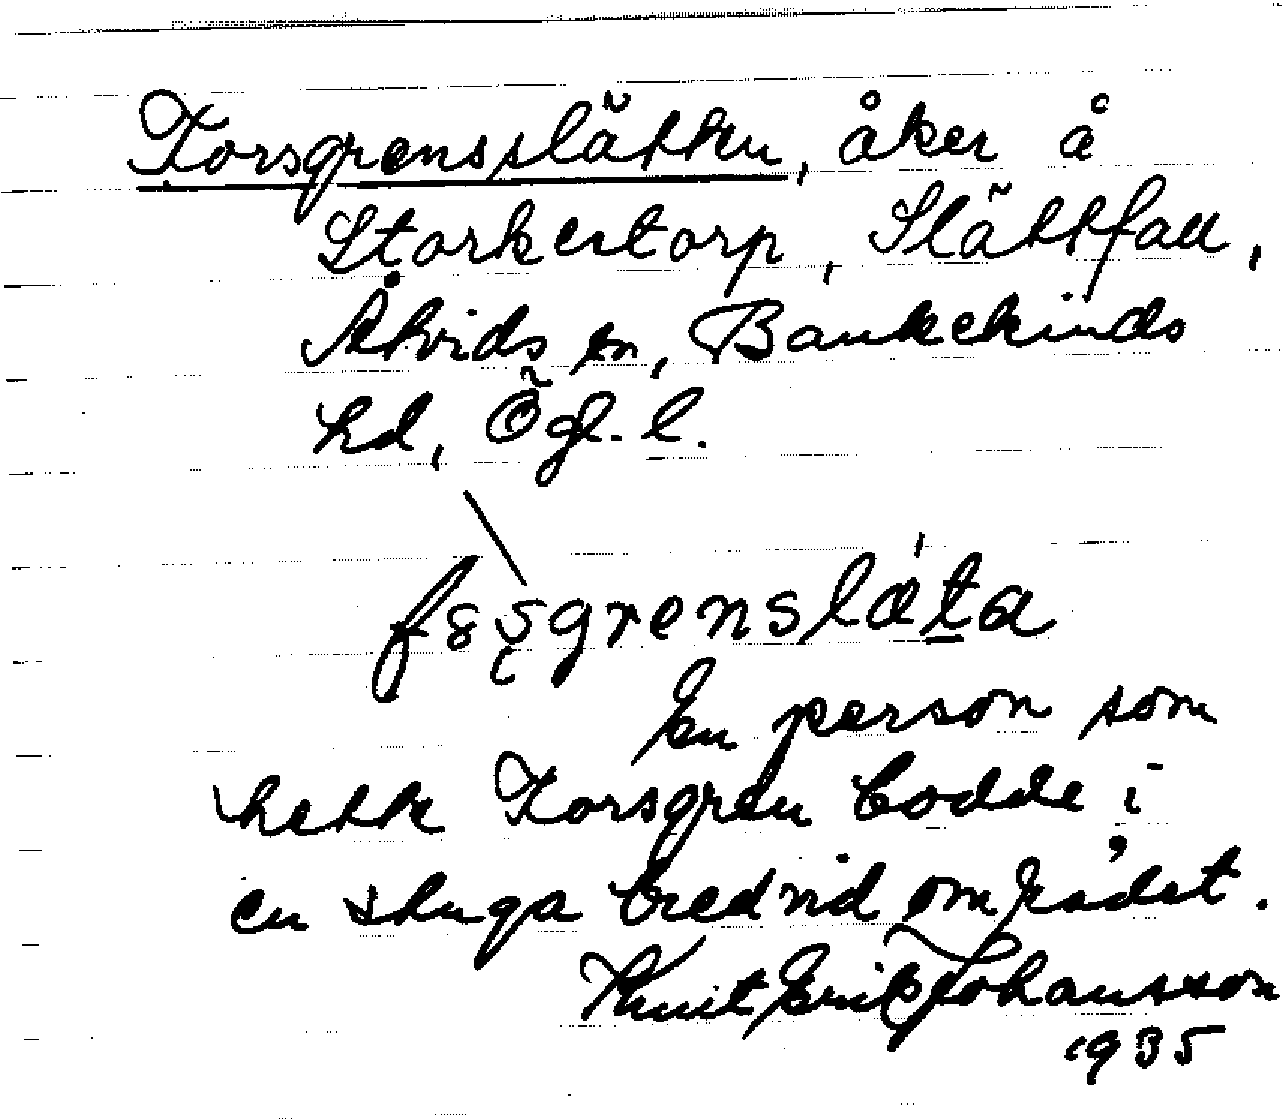 Forsgrensslätten, åker å
Storkertorp, Slättfall,
Åtvids sn, Bankekinds
hd, Ögl. l.
En person som
hette Forsgren bodde i
en stuga bredvid området.
Knut Erik Johansson
1935